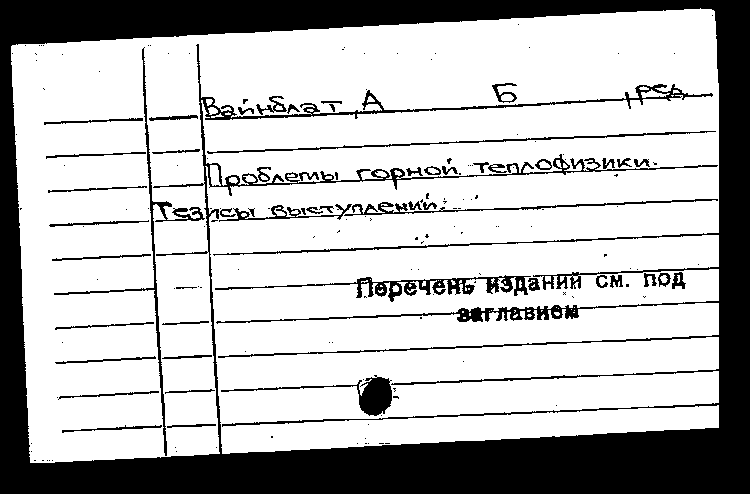 Вайнблат, А Б , ред.
Проблемы горной теплофизики.
Тезисы выступлений.
Перечень изданий см. под
заглавием